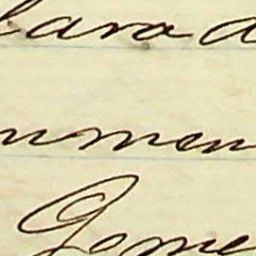 lara a
numen
Gome